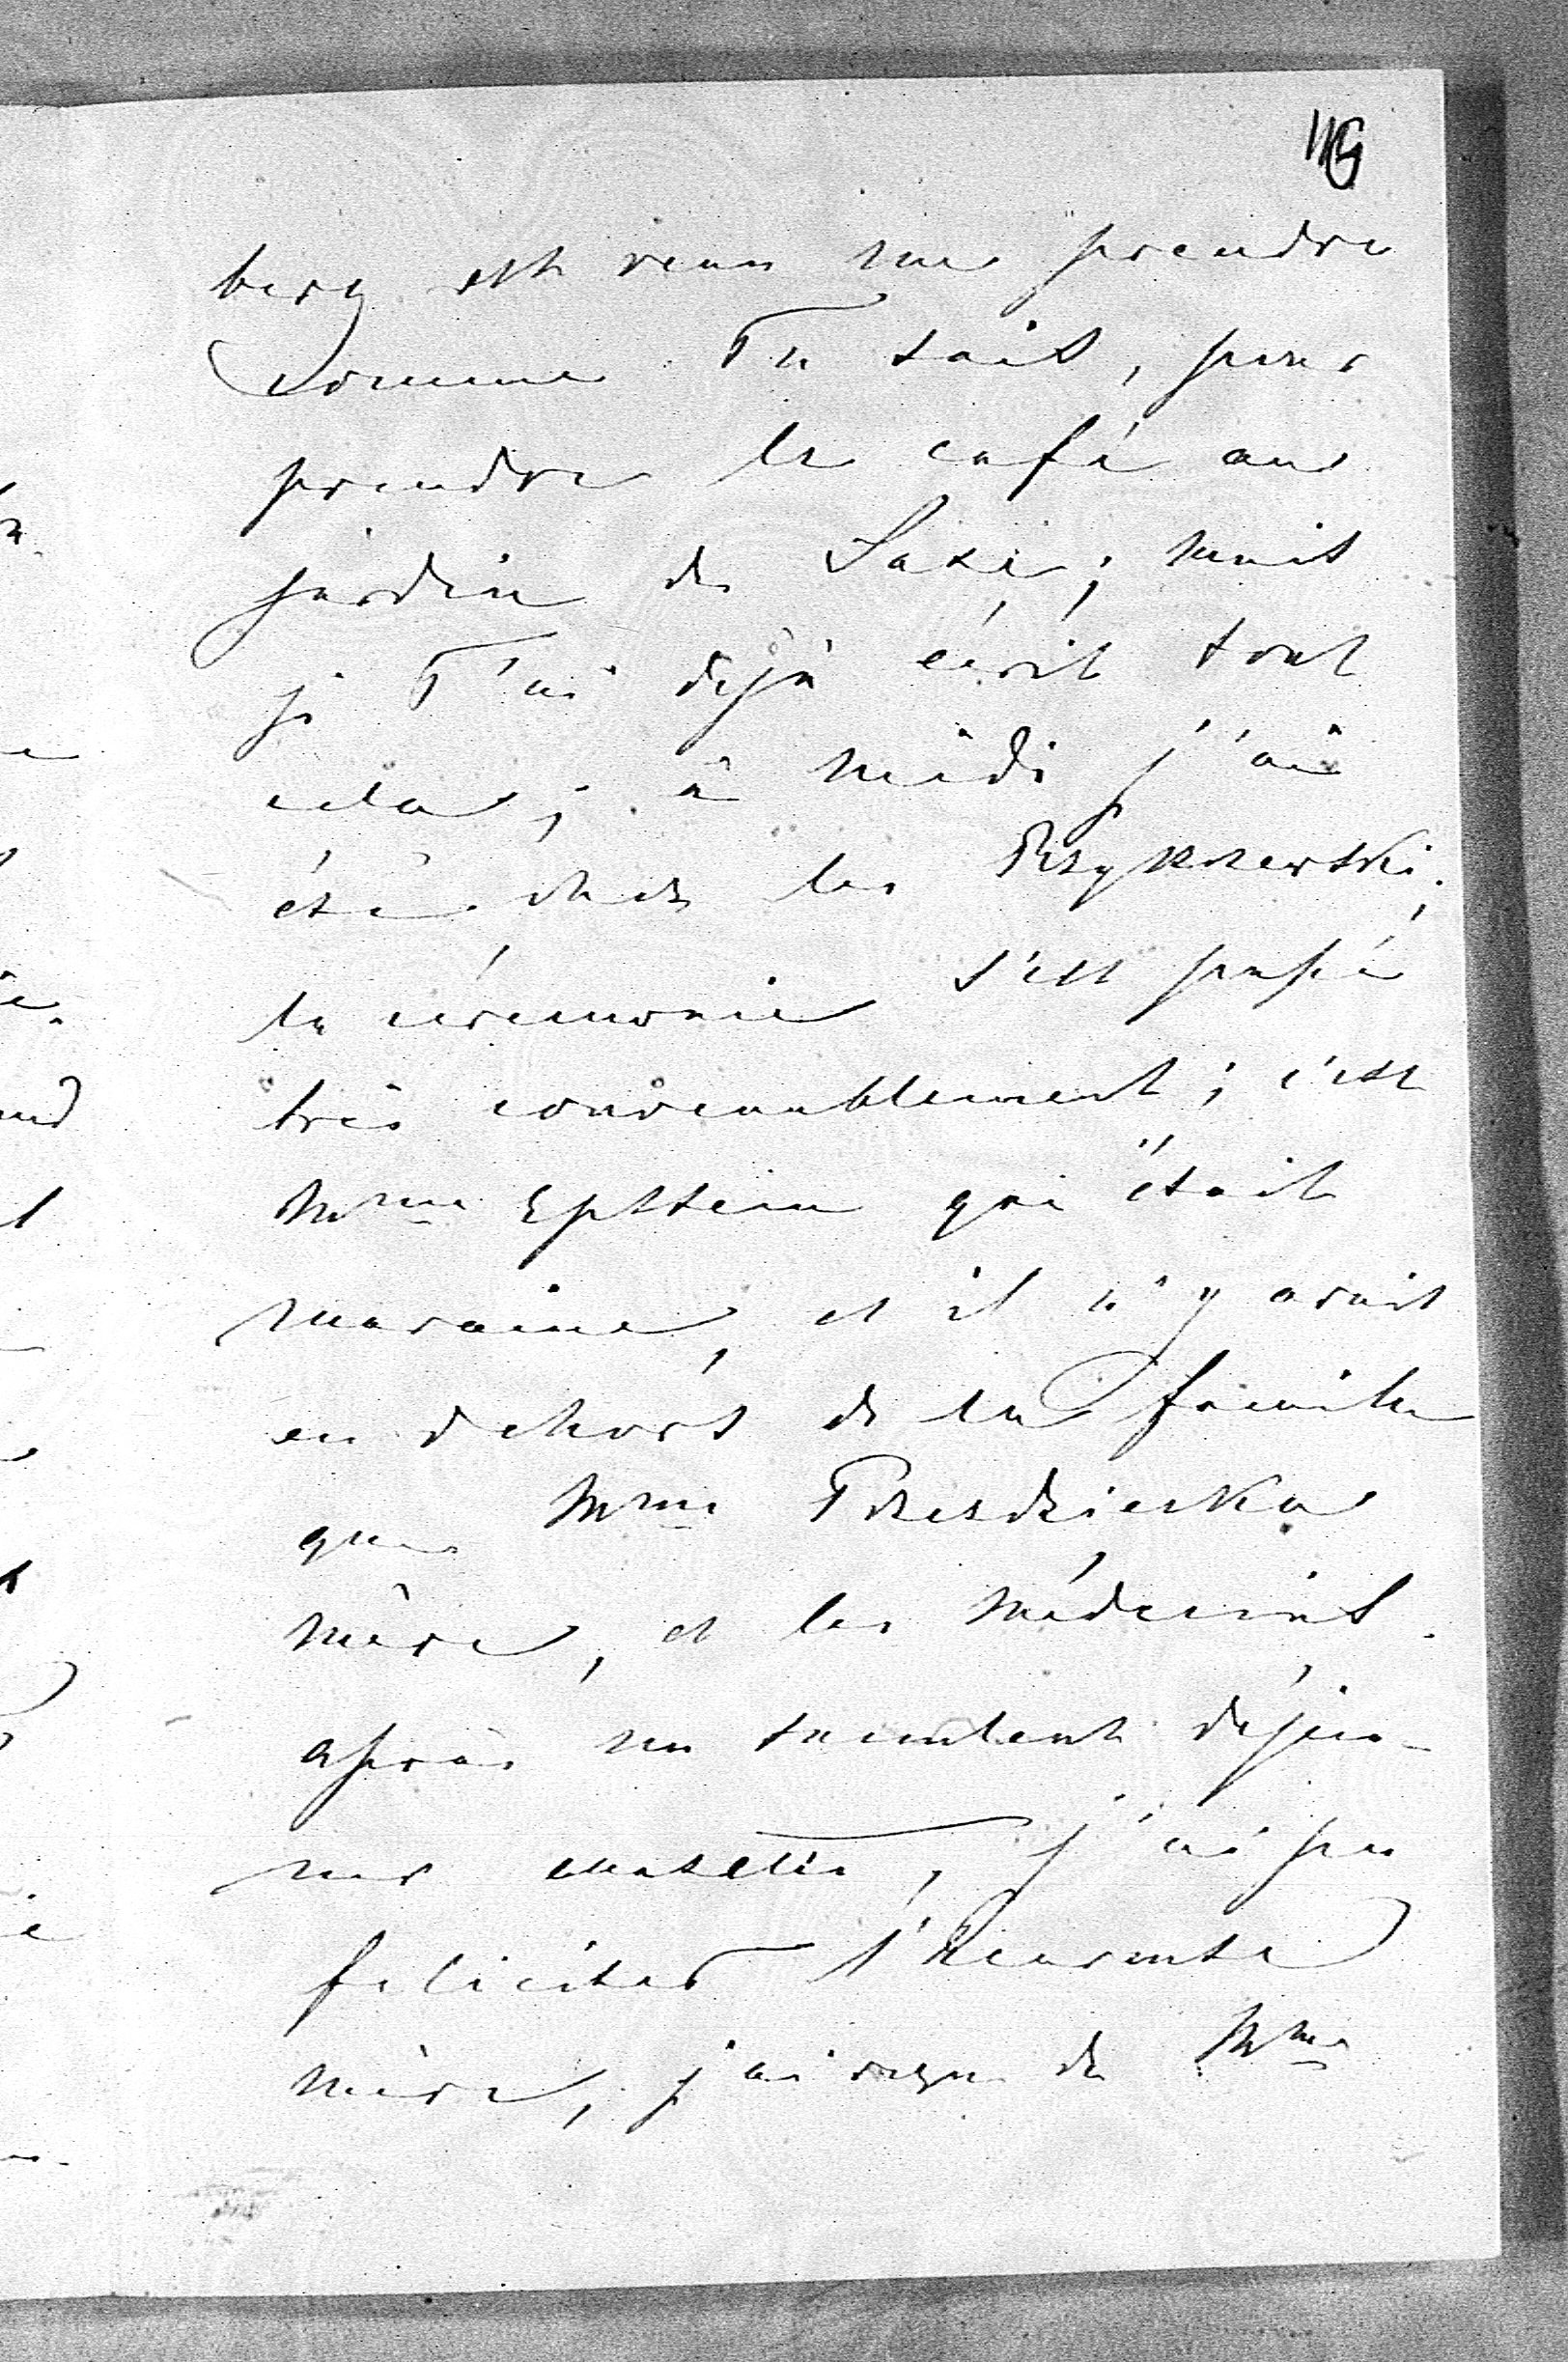 115
berg est venu me prendre
comme Tu sais, pour
prendre le café au
jardin de Saxe; mais
je T'ai déjà écrit tout
cela; à midi j'ai
été chez les
la cérémonie s'est passée
très convenablement; c'est
Mme Epstein qui était
maraine, et il n'y avait
en dehors de la famille
que Mme Przezdziecka
mère, et les médecins.
après un succulent déjeu-
ner j'ai pu
feliciter l'heureuse
mère, j'ai reçu de Mme